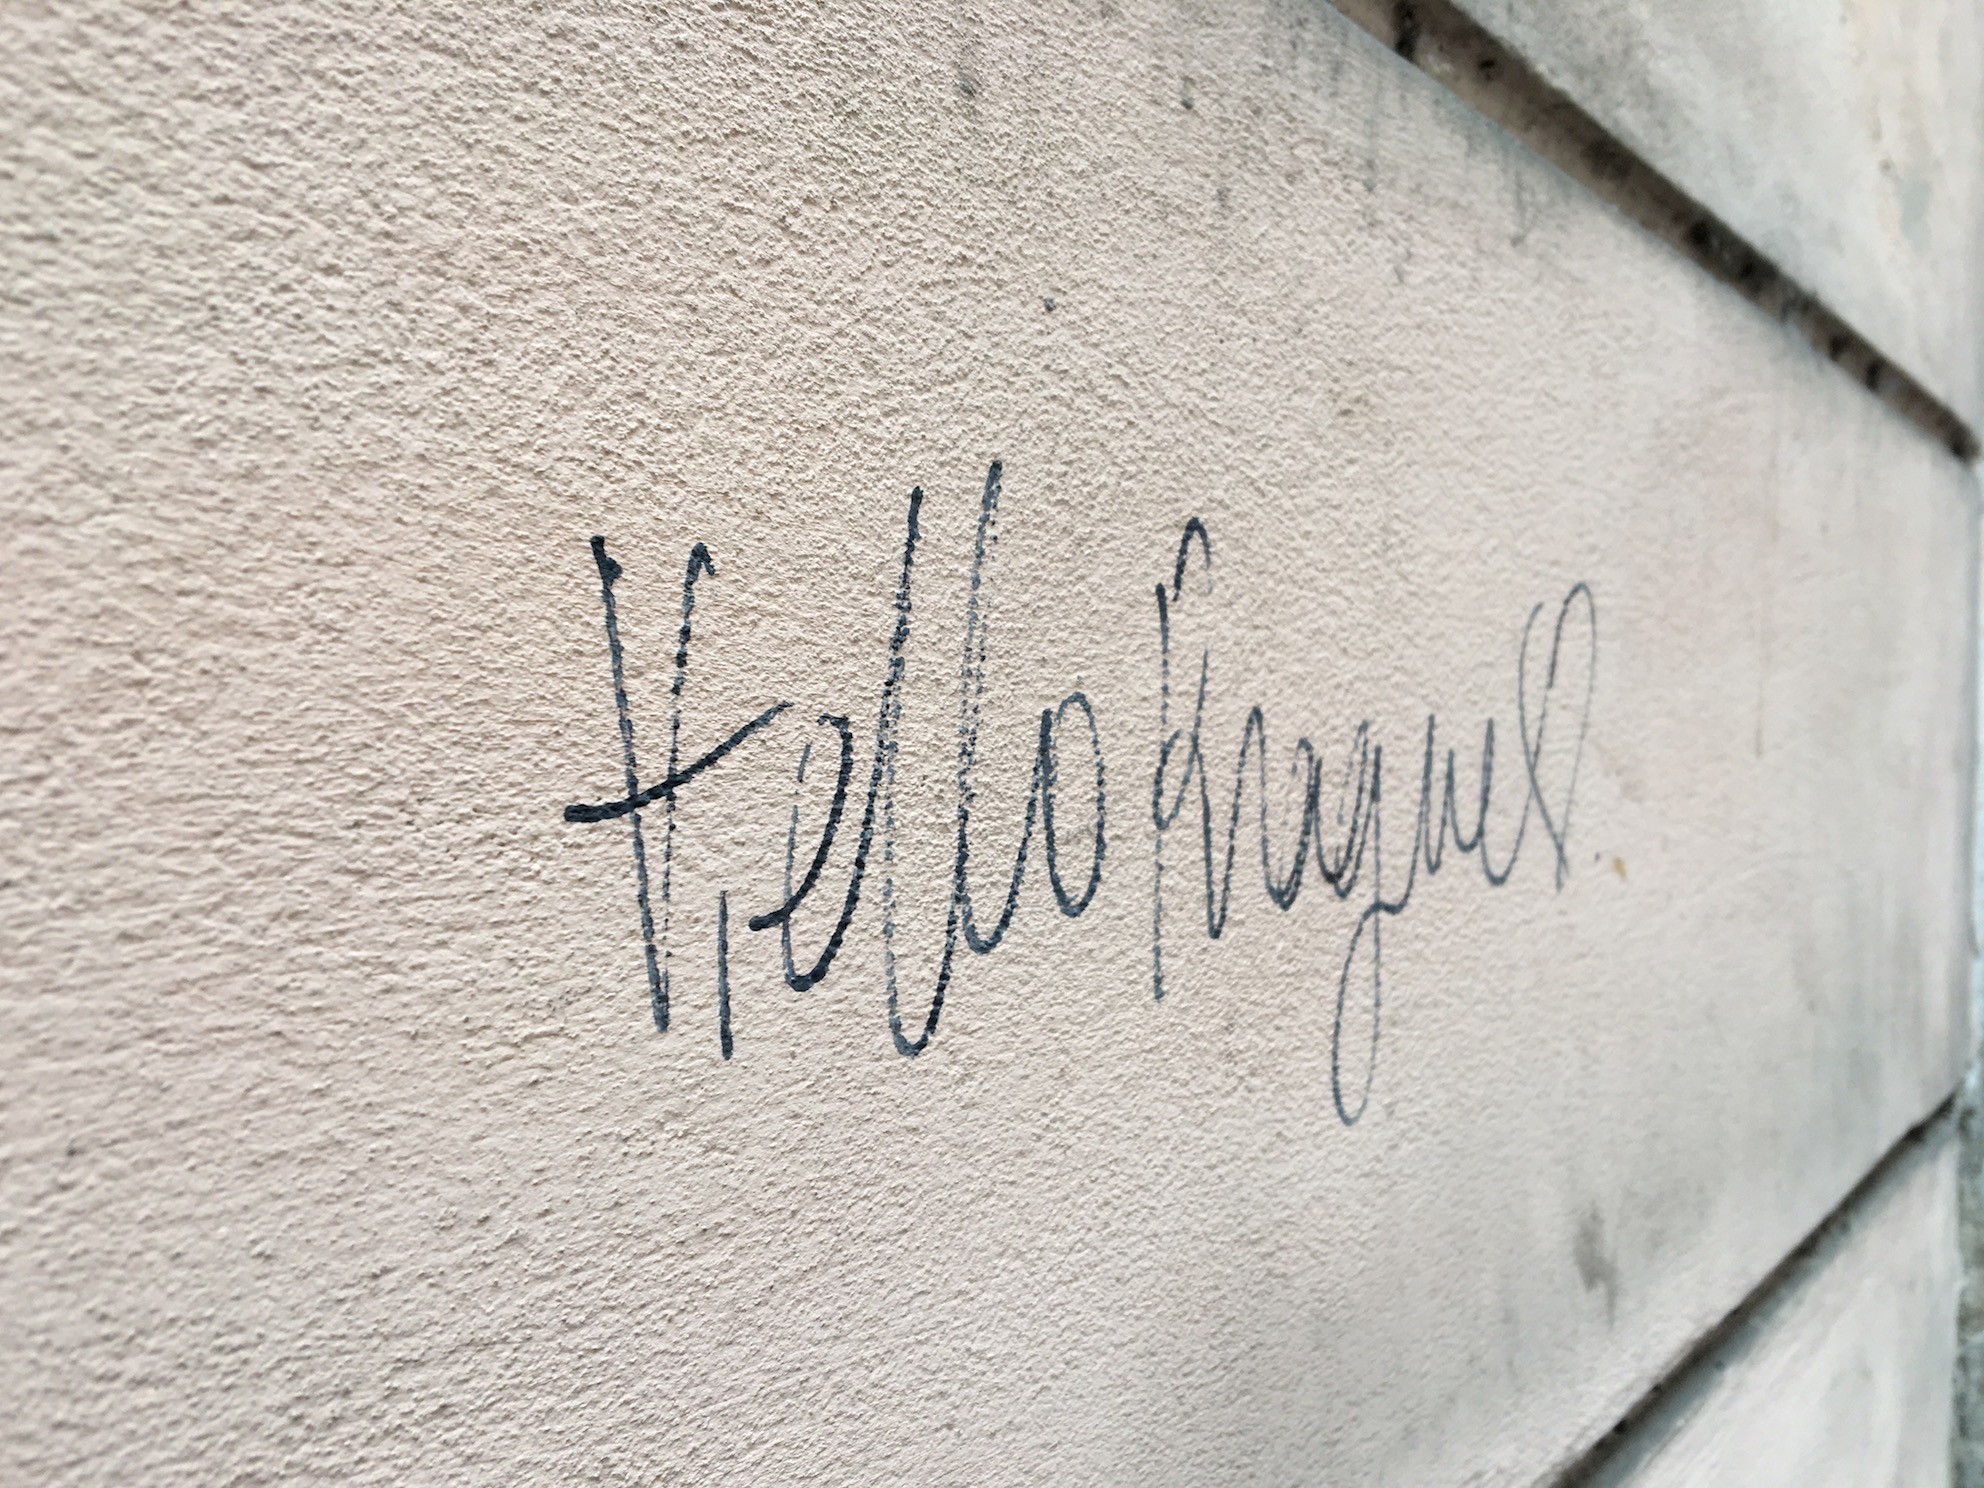 Hello Prague